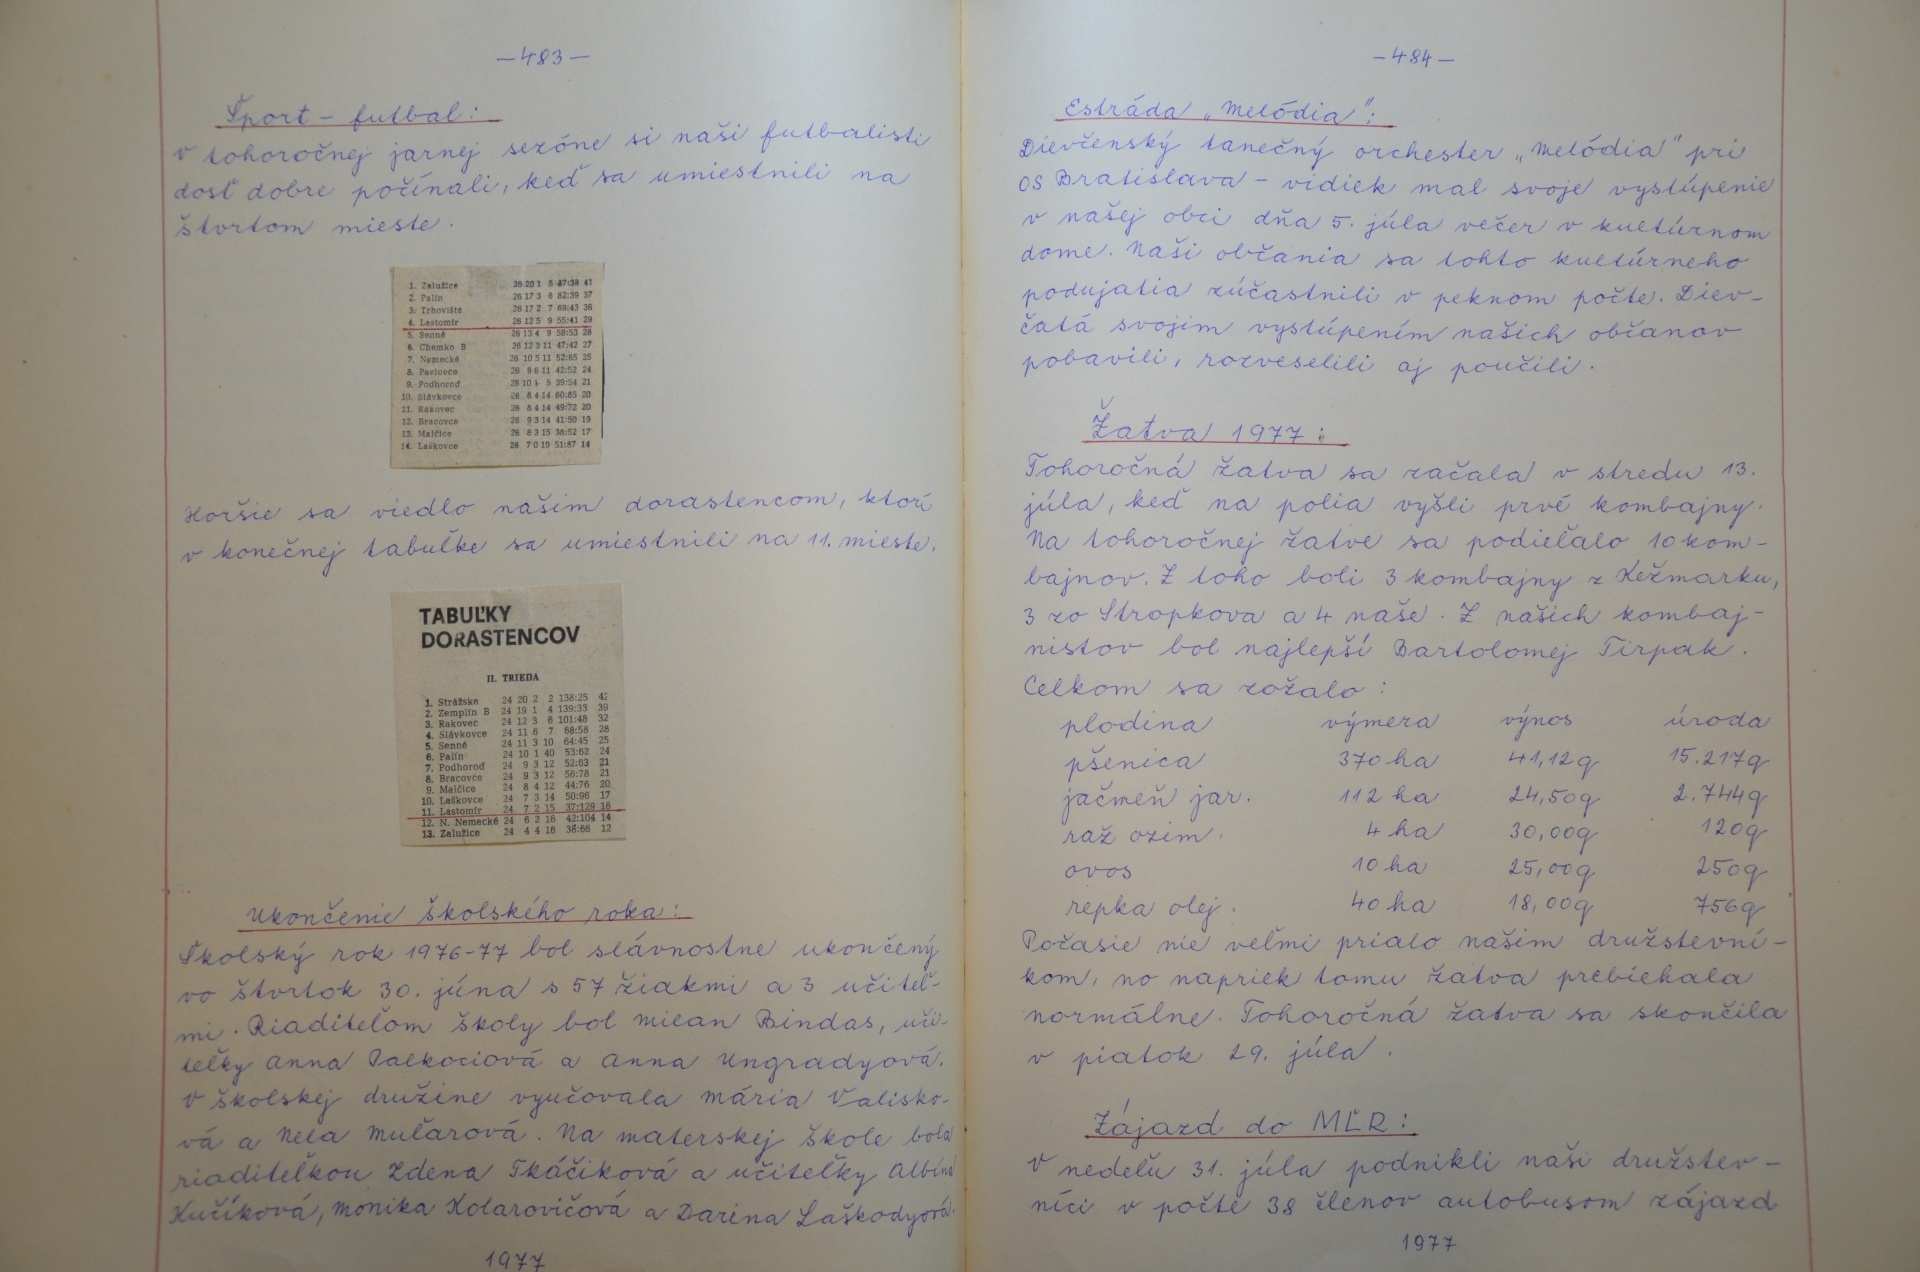 —483—
Šport – futbal:
V tohoročnej jarnej sezóne si naši futbalisti
dosť dobre počínali, keď sa umiestnili na
štvrtom mieste.
1. Zalužice 26 20 1 5 87:38 41
2. Palín 26 17 3 6 82:39 37
3. Trhovište 26 17 2 7 69:43 36
4. Lastomír 26 12 5 9 55:41 29
5. Senné 26 13 4 9 58:53 28
6. Chemko B 26 12 3 11 47:42 27
7. Nemecké 26 10 5 11 52:65 25
8. Pavlovce 26 9 6 11 42:52 24
9. Podhoroď 26 10 1 5 39:54 21
10. Slávkovce 26 8 4 14 60:85 20
11. Rakovec 26 8 4 14 49:72 20
12. Bracovce 26 9 3 14 41:50 19
13. Malčice 26 8 3 15 38:52 17
14. Laškovce 26 7 0 19 51:87 14
Horšie sa viedlo našim dorastencom, ktorí
v konečnej tabuľke sa umiestnili na 11. mieste.
TABUĽKY
DORASTENCOV
II. TRIEDA
1. Strážske 24 20 2 2 138:25 42
2. Zemplín B 24 19 1 4 139:33 39
3. Rakovec 24 12 3 6 101:48 32
4. Slávkovce 24 11 6 7 68:58 28
5. Senné 24 11 3 10 64:45 25
6. Palín 24 10 1 40 53:62 24
7. Podhoroď 24 9 3 12 52:63 21
8. Bracovce 24 9 3 12 56:78 21
9. Malčice 24 8 4 12 44:76 20
10. Laškovce 24 7 3 14 50:96 17
11. Lastomír 24 7 2 15 37:129 16
12. N. Nemecké 24 6 2 16 42:104 14
13. Zalužice 24 4 4 16 38:66 12
Ukončenie školského roka:
Školský rok 1976-77 bol slávnostne ukončený
vo štvrtok 30. júna s 57 žiakmi a 3 učiteľ-
mi. Riaditeľom školy bol Milan Bindas, uči-
teľky Anna Palkociová a Anna Ungradyová.
V školskej družine vyučovala Mária Valisko-
vá a Nela Mulárová. Na materskej škole bola
riaditeľkou Zdena Tkáčiková a učiteľky Albína
Kučíková, Monika Kolarovičová a Darina Laškodyová.
1977
—484—
Estráda „Melódia":
Dievčenský tanečný orchester „Melódia" pri
OS Bratislava – vidiek mal svoje vystúpenie
v našej obci dňa 5. júla večer v kultúrnom
dome. Naši občania sa tohto kultúrneho
podujatia zúčastnili v peknom počte. Diev-
čatá svojim vystúpením našich občanov
pobavili, rozveselili aj poučili.
Žatva 1977:
Tohoročná žatva sa začala v stredu 13.
júla, keď na polia vyšli prvé kombajny.
Na tohoročnej žatve sa podieľalo 10 kom-
bajnov. Z toho boli 3 kombajny z Kežmarku,
3 zo Stropkova a 4 naše. Z našich kombaj-
nistov bol najlepší Bartolomej Tirpak.
Celkom sa zožalo:
plodina výmera výnos úroda
pšenica 370 ha 41,12q 15.217q
jačmeň jar. 112 ha 24,50q 2.744q
raž ozim. 4 ha 30,00q 120q
ovos 10 ha 25,00q 250q
repka olej. 40 ha 18,00q 756q
Počasie nie veľmi prialo našim družstevní-
kom, no napriek tomu žatva prebiehala
normálne. Tohoročná žatva sa skončila
v piatok 29. júla.
Zájazd do MĽR:
V nedeľu 31. júla podnikli naši družstev-
níci v počte 38 členov autobusom zájazd
1977